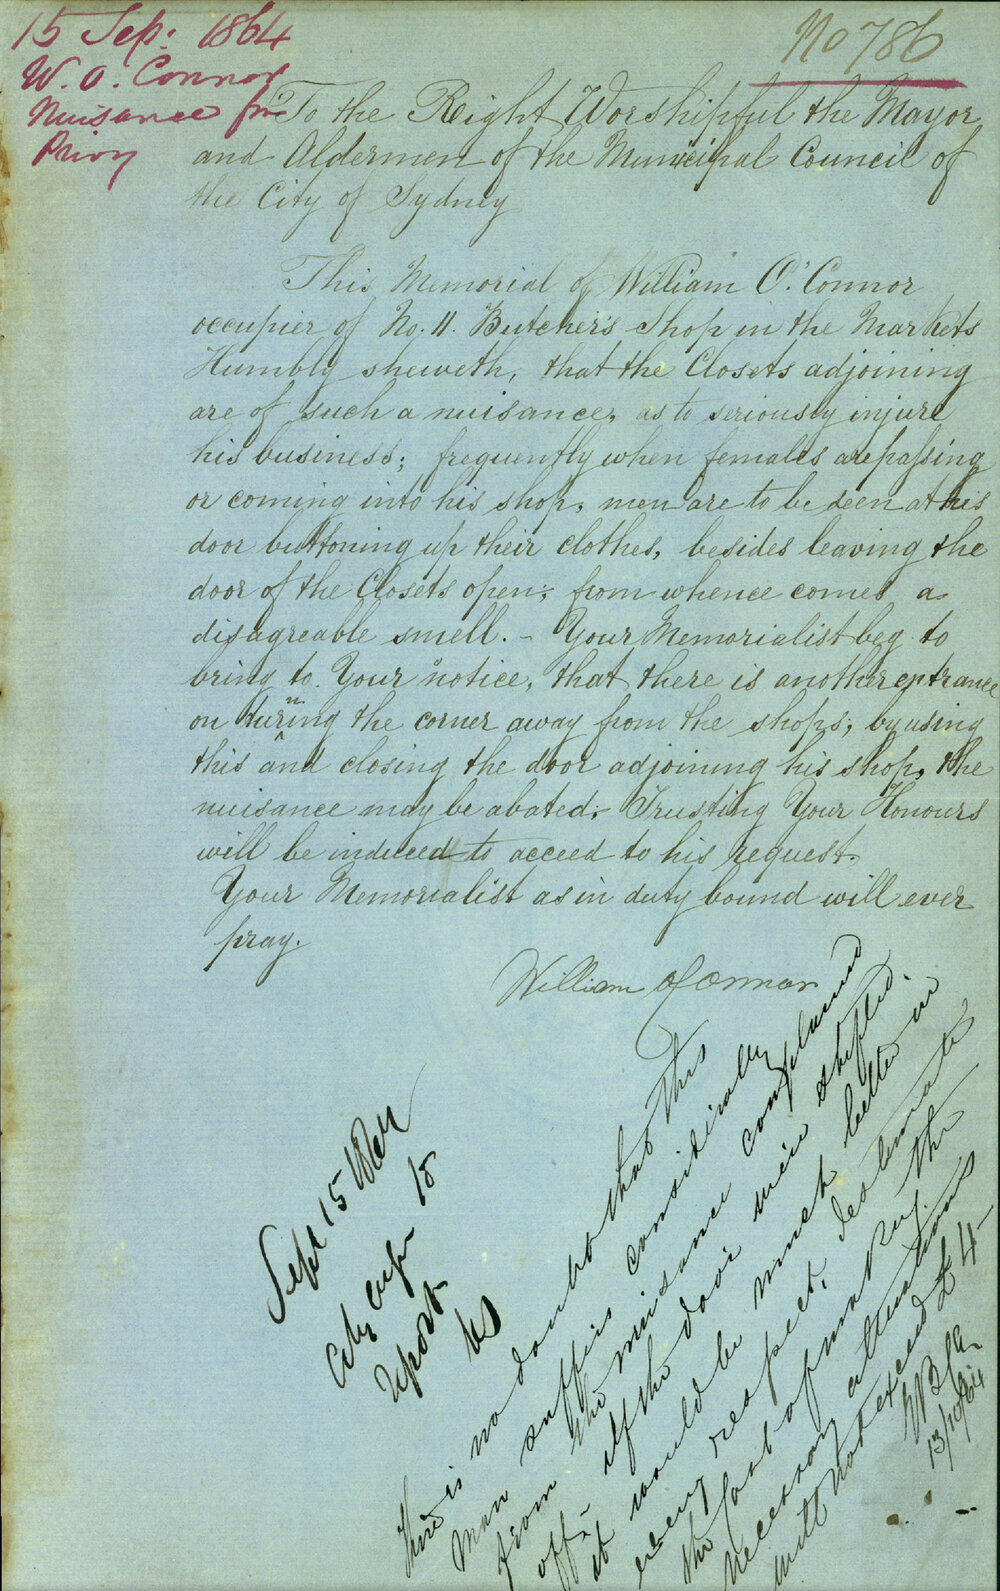 15 Sep: 1864
W. O. Connor
Nuisance from
Privy
No 786
To the Right Worshipful the Mayor
and Aldermen of the Municipal Council of
the City of Sydney
This Memorial of William O'Connor
occupier of No. 11. Butcher's Shop in the Markets
Humbly sheweth, that the Closets adjoining
are of such a nuisance, as to seriously injure
his business; frequently when females are passing
or coming into his shop, men are to be seen at his
door buttoning up their clothes, besides leaving the
door of the Closets open; from whence comes a
disagreable smell. - Your Memorialist beg to
bring to Your notice, that there is another entrance
on turning the corner away from the shops; by using
this and closing the door adjoining his shop, the
nuisance may be abated. Trusting Your Honours
will be induced to acceed to his request.
Your Memorialist as in duty bound will ever
pray.
William O'Connor
Sept 15 1864
City
to
report
There is no doubt that this
man suffers considerably
from the nuisance complained
off - if the door were shifted
it would be much better in
every respect,
the Cost of making the
necessary alterations
will not exceed £4-
13/10/64